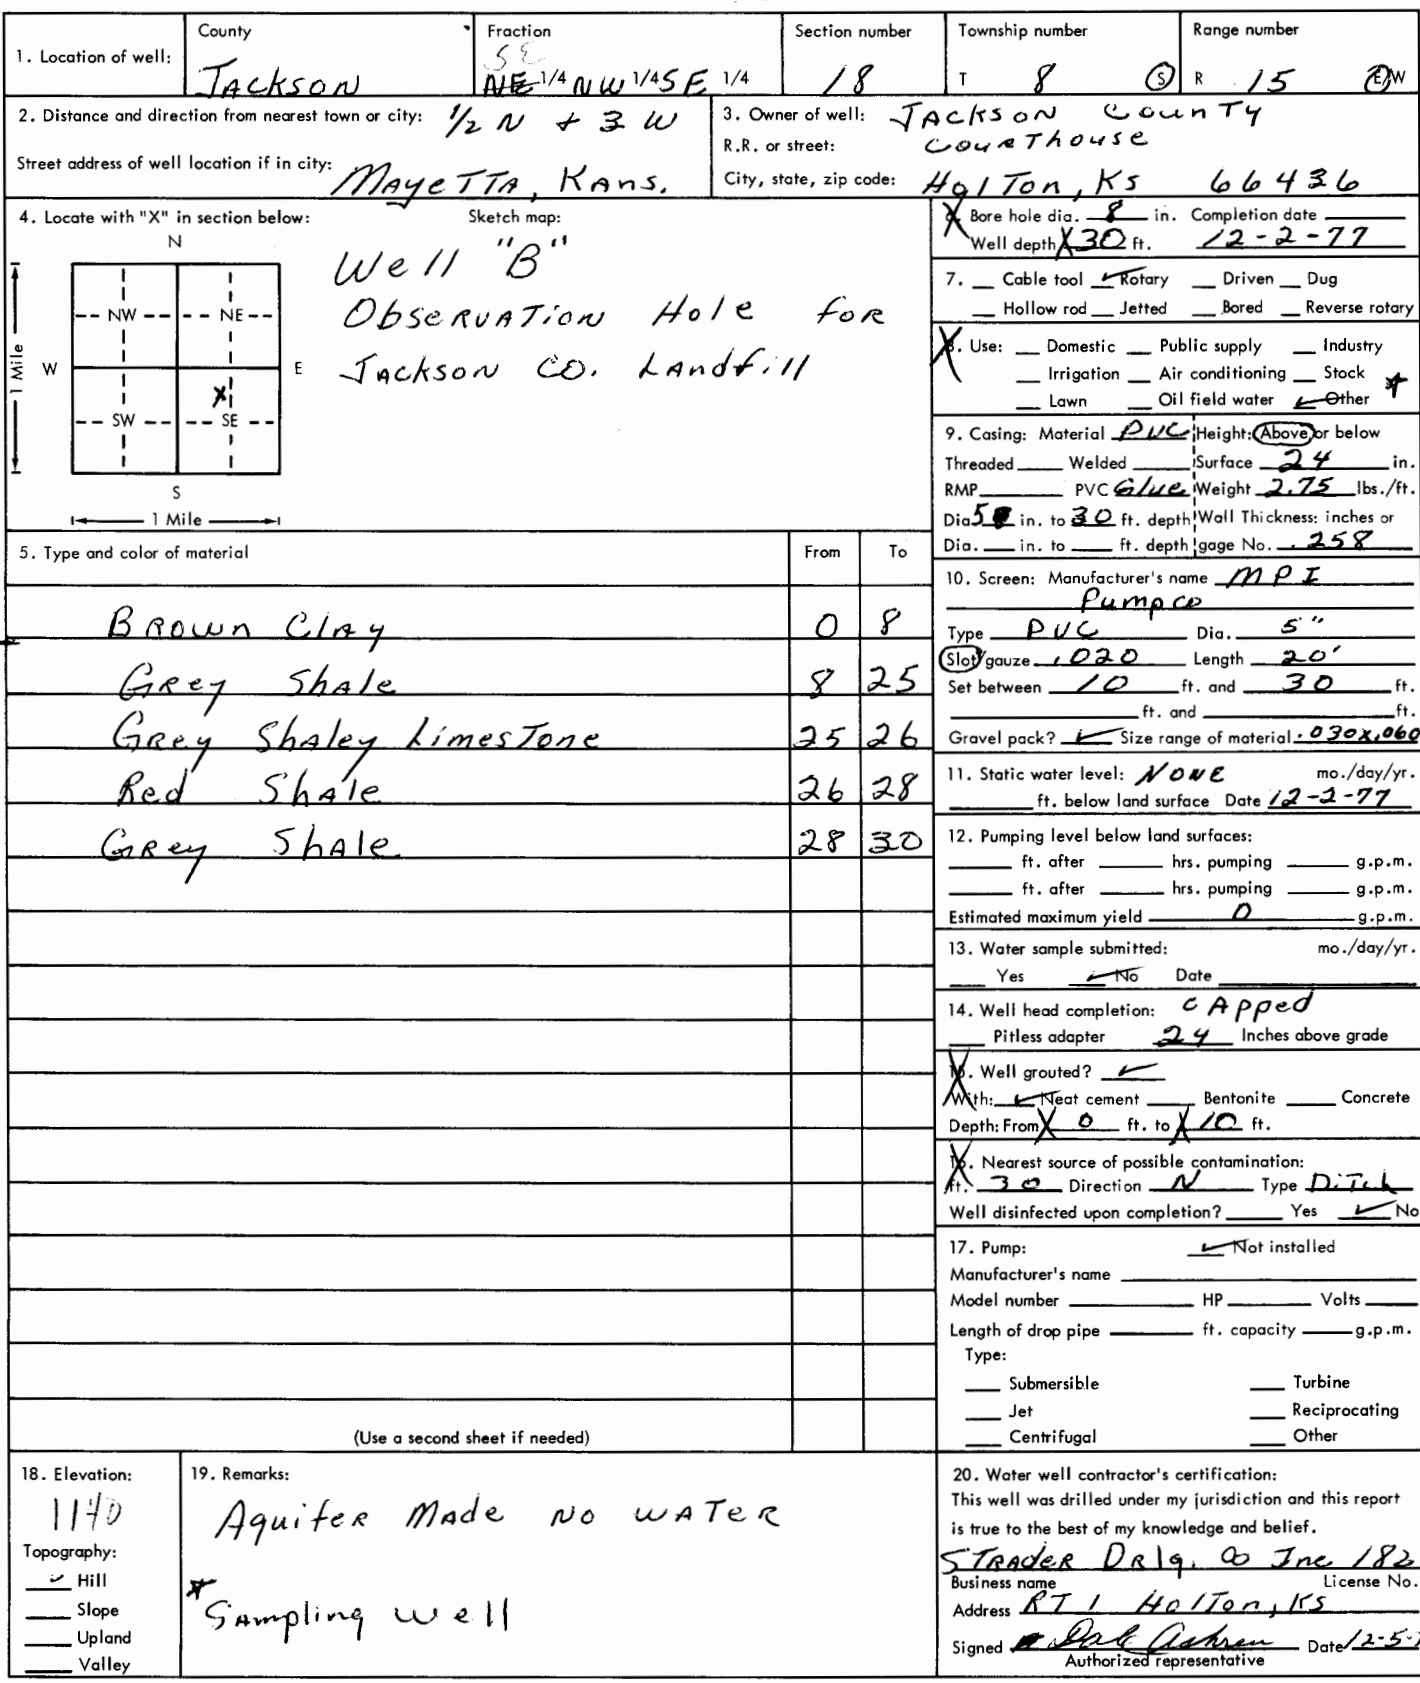 1. Location of well: County Jackson Fraction SE NE 1/4 NW 1/4 SE 1/4 Section number 18 Township number T 8 S Range number R 15 E/W
2. Distance and direction from nearest town or city: 1/2 N + 3 W
Street address of well location if in city: Mayetta, Kans.
3. Owner of well: Jackson County
R.R. or street: Courthouse
City, state, zip code: Halton, Ks 66436
4. Locate with "X" in section below: Sketch map:
N
NW NE
W E
X
SW SE
S
1 Mile
1 Mile
Well "B"
Observation Hole for
Jackson Co. Landfill
5. Type and color of material From To
Brown Clay 0 8
Grey Shale 8 25
Grey Shaley Limestone 25 26
Red Shale 26 28
Grey Shale 28 30
(Use a second sheet if needed)
Bore hole dia. 8 in. Completion date
Well depth 30 ft. 12-2-77
7. Cable tool ✓ Rotary Driven Dug
Hollow rod Jetted Bored Reverse rotary
8. Use: Domestic Public supply Industry
Irrigation Air conditioning Stock *
Lawn Oil field water ✓ Other
9. Casing: Material PVC Height: Above or below
Threaded Welded Surface 24 in.
RMP PVC Glue Weight 2.75 lbs./ft.
Dia 5 in. to 30 ft. depth Wall Thickness: inches or
Dia. in. to ft. depth gage No. .258
10. Screen: Manufacturer's name MPI
Pumpco
Type PVC Dia. 5"
Slot/gauze .020 Length 20'
Set between 10 ft. and 30 ft.
ft. and ft.
Gravel pack? ✓ Size range of material .030x.060
11. Static water level: None mo./day/yr.
ft. below land surface Date 12-2-77
12. Pumping level below land surfaces:
ft. after hrs. pumping g.p.m.
ft. after hrs. pumping g.p.m.
Estimated maximum yield 0 g.p.m.
13. Water sample submitted: mo./day/yr.
Yes ✓ No Date
14. Well head completion: Capped
Pitless adapter 24 Inches above grade
Well grouted? ✓
With: ✓ Neat cement Bentonite Concrete
Depth: From 0 ft. to 10 ft.
Nearest source of possible contamination:
ft. 30 Direction N Type Ditch
Well disinfected upon completion? Yes ✓ No
17. Pump: ✓ Not installed
Manufacturer's name
Model number HP Volts
Length of drop pipe ft. capacity g.p.m.
Type:
Submersible Turbine
Jet Reciprocating
Centrifugal Other
18. Elevation:
1140
Topography:
✓ Hill
Slope
Upland
Valley
19. Remarks:
Aquifer Made No Water
* Sampling well
20. Water well contractor's certification:
This well was drilled under my jurisdiction and this report
is true to the best of my knowledge and belief.
Strader Drlg. Co Inc 182
Business name License No.
Address RT 1 Holton, Ks
Signed Dale Date 12-5-7
Authorized representative